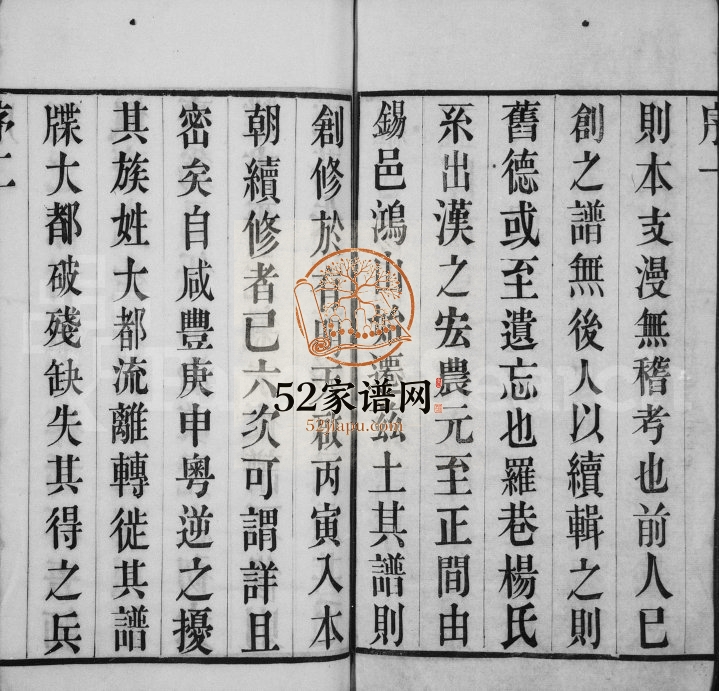 序一
則本支漫無稽考也前人已
創之譜無後人以續輯之則
舊德或至遺忘也羅巷楊氏
系出漢之宏農元至正間由
錫邑鴻山始遷茲土其譜則
創修於有明天啟丙寅入本
朝續修者已六次可謂詳且
密矣自咸豐庚申粵逆之擾
其族姓大都流離轉徙其譜
牒大都破殘缺失其得之兵
序二
52家谱网
52jiapu.com